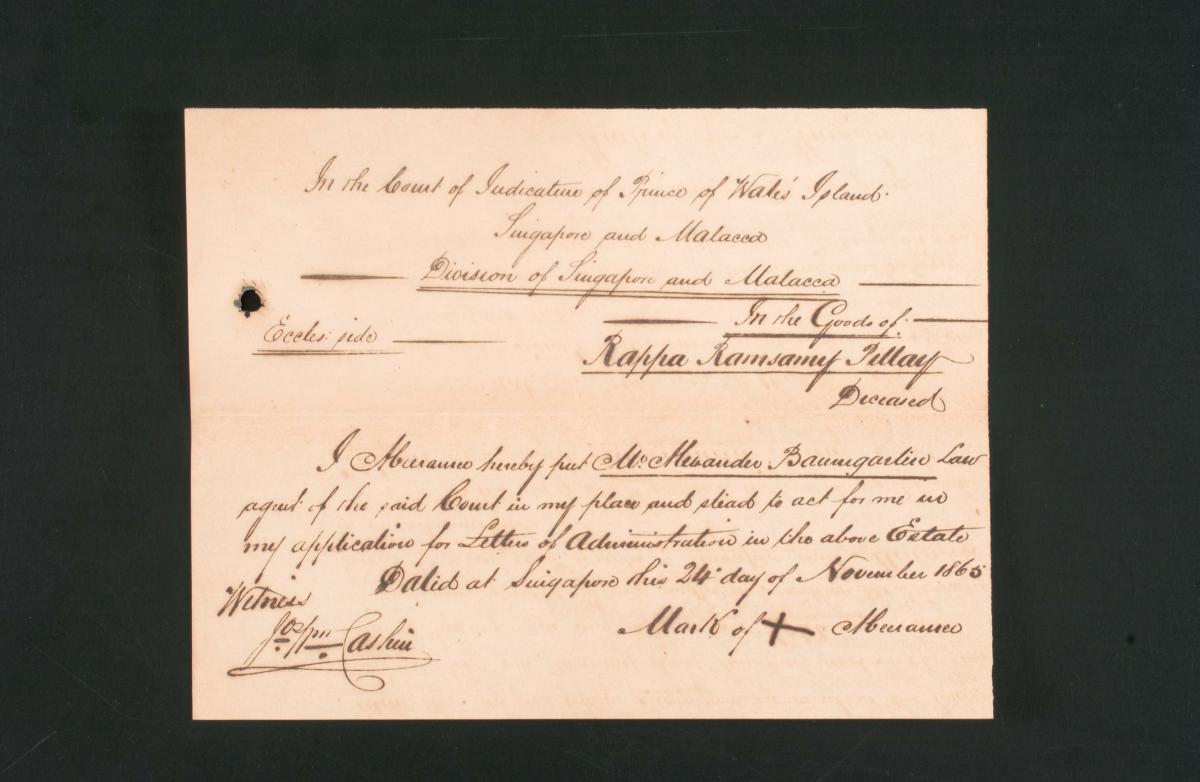 In the Court of Judicature of Prince of Wales' Island
Singapore and Malacca
Division of Singapore and Malacca
In the Goods of
Eccles: side
Rappa Ramsamy Pillay
Deceased
I hereby put Mr. Alexander Baumgarten Law
agent of the said Court in my place and stead to act for me in
my application for Letters of Administration in the above Estate
Dated at Singapore this 24 day of November 1865
Witness
Mark of +
Cashin